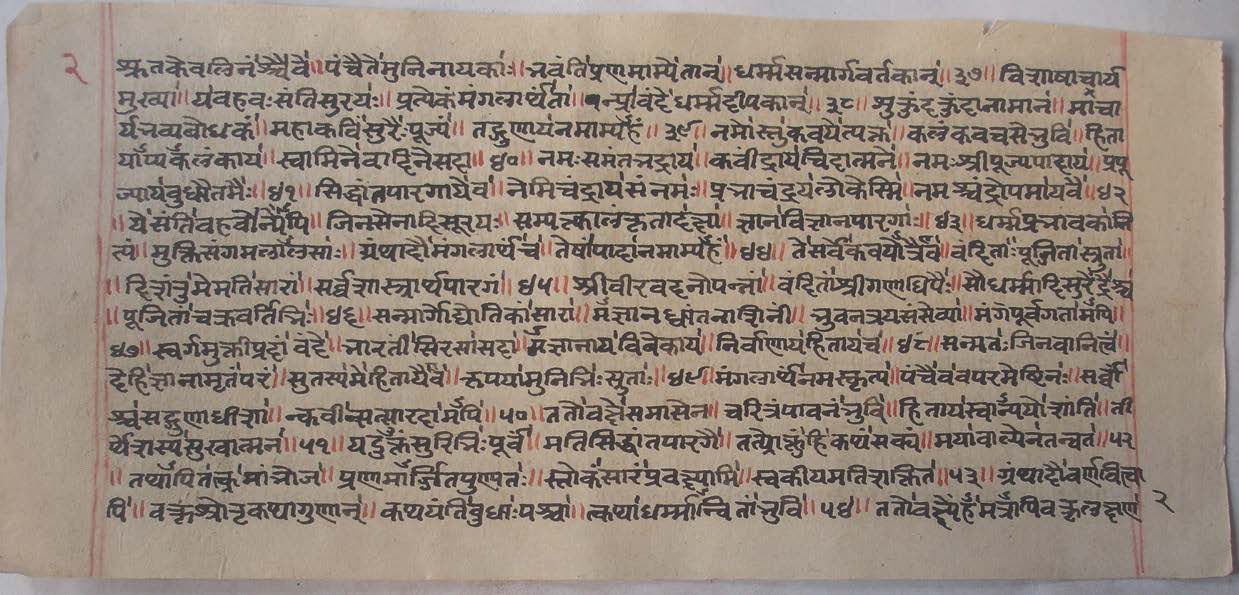 २
श्रुतकेवलिनश्चैवं॥ पंचैते मुनिनायकाः॥ भवंति प्रणमाम्येतान्॥ धर्म्मसन्मार्गवर्तकान्॥ ३७॥ विशाषाचार्य
मुख्या॥ य बहवः संति सुरयः॥ प्रत्येकं मंगलार्थ ता॥ न्प्रवंदे धर्म्मदीपकान्॥ ३८॥ कुंदकुंदानामानं॥ माचा
र्यभव्यबोधकं॥ महाकविं सुरैः पूज्यं॥ तद्गुणाय नमाम्यहं॥ ३९॥ नमोस्तु कवये त्यक्त॥ कलंकवचसे भुवि॥ हिता
याप्यकलंकाय॥ स्वामिने वादिने सदा॥ ४०॥ नमः समंतभद्राय॥ कवींद्राय चिदात्मने॥ नमः श्रीपूज्यपादाय॥ प्रपू
ज्याय बुधोत्तमैः॥ ४१॥ सिद्धांतपारगायैव॥ नेमिचंद्राय सं नमः॥ प्रभाचंद्राय लोकेस्मि॥ नमश्चंद्रोपमाय वै॥ ४२
॥ ये संति बहवोन्येपि॥ जिनसेनादिसूरयः॥ सम्यक्त्वालंकृता दक्षा॥ ज्ञानविज्ञानपारगाः॥ ४३॥ धर्म्मप्रभावका नि
त्यं॥ मुक्तिसंगमलालसाः॥ ग्रंथादौ मंगलार्थं च॥ तेषां पादा नमाम्यहं॥ ४४॥ ते सर्वे कवयोत्रैव॥ वंदिताः पूजिता स्तुता॥
॥ दिशंतु मे मतिं सारां॥ सर्व्वशास्त्रार्थपारगं॥ ४५॥ श्रीवीरवदनोपन्नां॥ वंदितां श्रीगणाधिपैः॥ सौधर्म्मादिसुरैंद्रैश्च
॥ पूजितां चक्रवर्त्तिभिः॥ ४६॥ सन्मार्गोद्योतिकां सारा॥ मज्ञानध्वांतनाशिनी॥ भुवनत्रयसंसेव्या॥ मंगपूर्वगतामपि॥
४७॥ स्वर्गमुक्तीप्रदां वंदे॥ भारती सिरसा सदा॥ मज्ञानाय विवेकाय॥ निर्वाणाय हिताय च॥ ४८॥ सन्मतं जिनवानि त्वं॥
देहि ज्ञानामृतं परं॥ सुतस्य मे हितायैव॥ कृपया मुनिभिः स्तुताः॥ ४९॥ मंगलार्थं नमस्कृत्य॥ पंचैव परमेष्ठिनः॥ सर्व्वा
श्च सद्गुणाधीशा॥ न्कवीन्सत्सारदामपि॥ ५०॥ ततो वक्ष्ये समासेन॥ चरित्रं पावनं भुवि॥ हिताय स्वान्ययो शांति॥ ती
र्थेशस्य सुखात्मनं॥ ५१॥ यदुक्तं सुरिभिः पूर्वं॥ मतिसिद्धांतपारगै॥ तत्प्रोक्तुं हि कथं सक्यं॥ मया बाल्येन तन्वतं॥ ५२
॥ तथापि तत्क्रमांभोज॥ प्रणमार्जितपुण्यतः॥ स्तोकं सारं प्रवक्ष्यामि॥ स्वकीयमतिशक्तितं॥ ५३॥ ग्रंथादौ वर्णयित्वा
पि॥ वक्तृश्रोतृकथागुणान्॥ कथयंति बुधाः पश्चा॥ त्कथां धर्म्मान्वितां भुवि॥ ५४॥ ततो वक्ष्येहमत्रापि वक्तृलक्षण
२